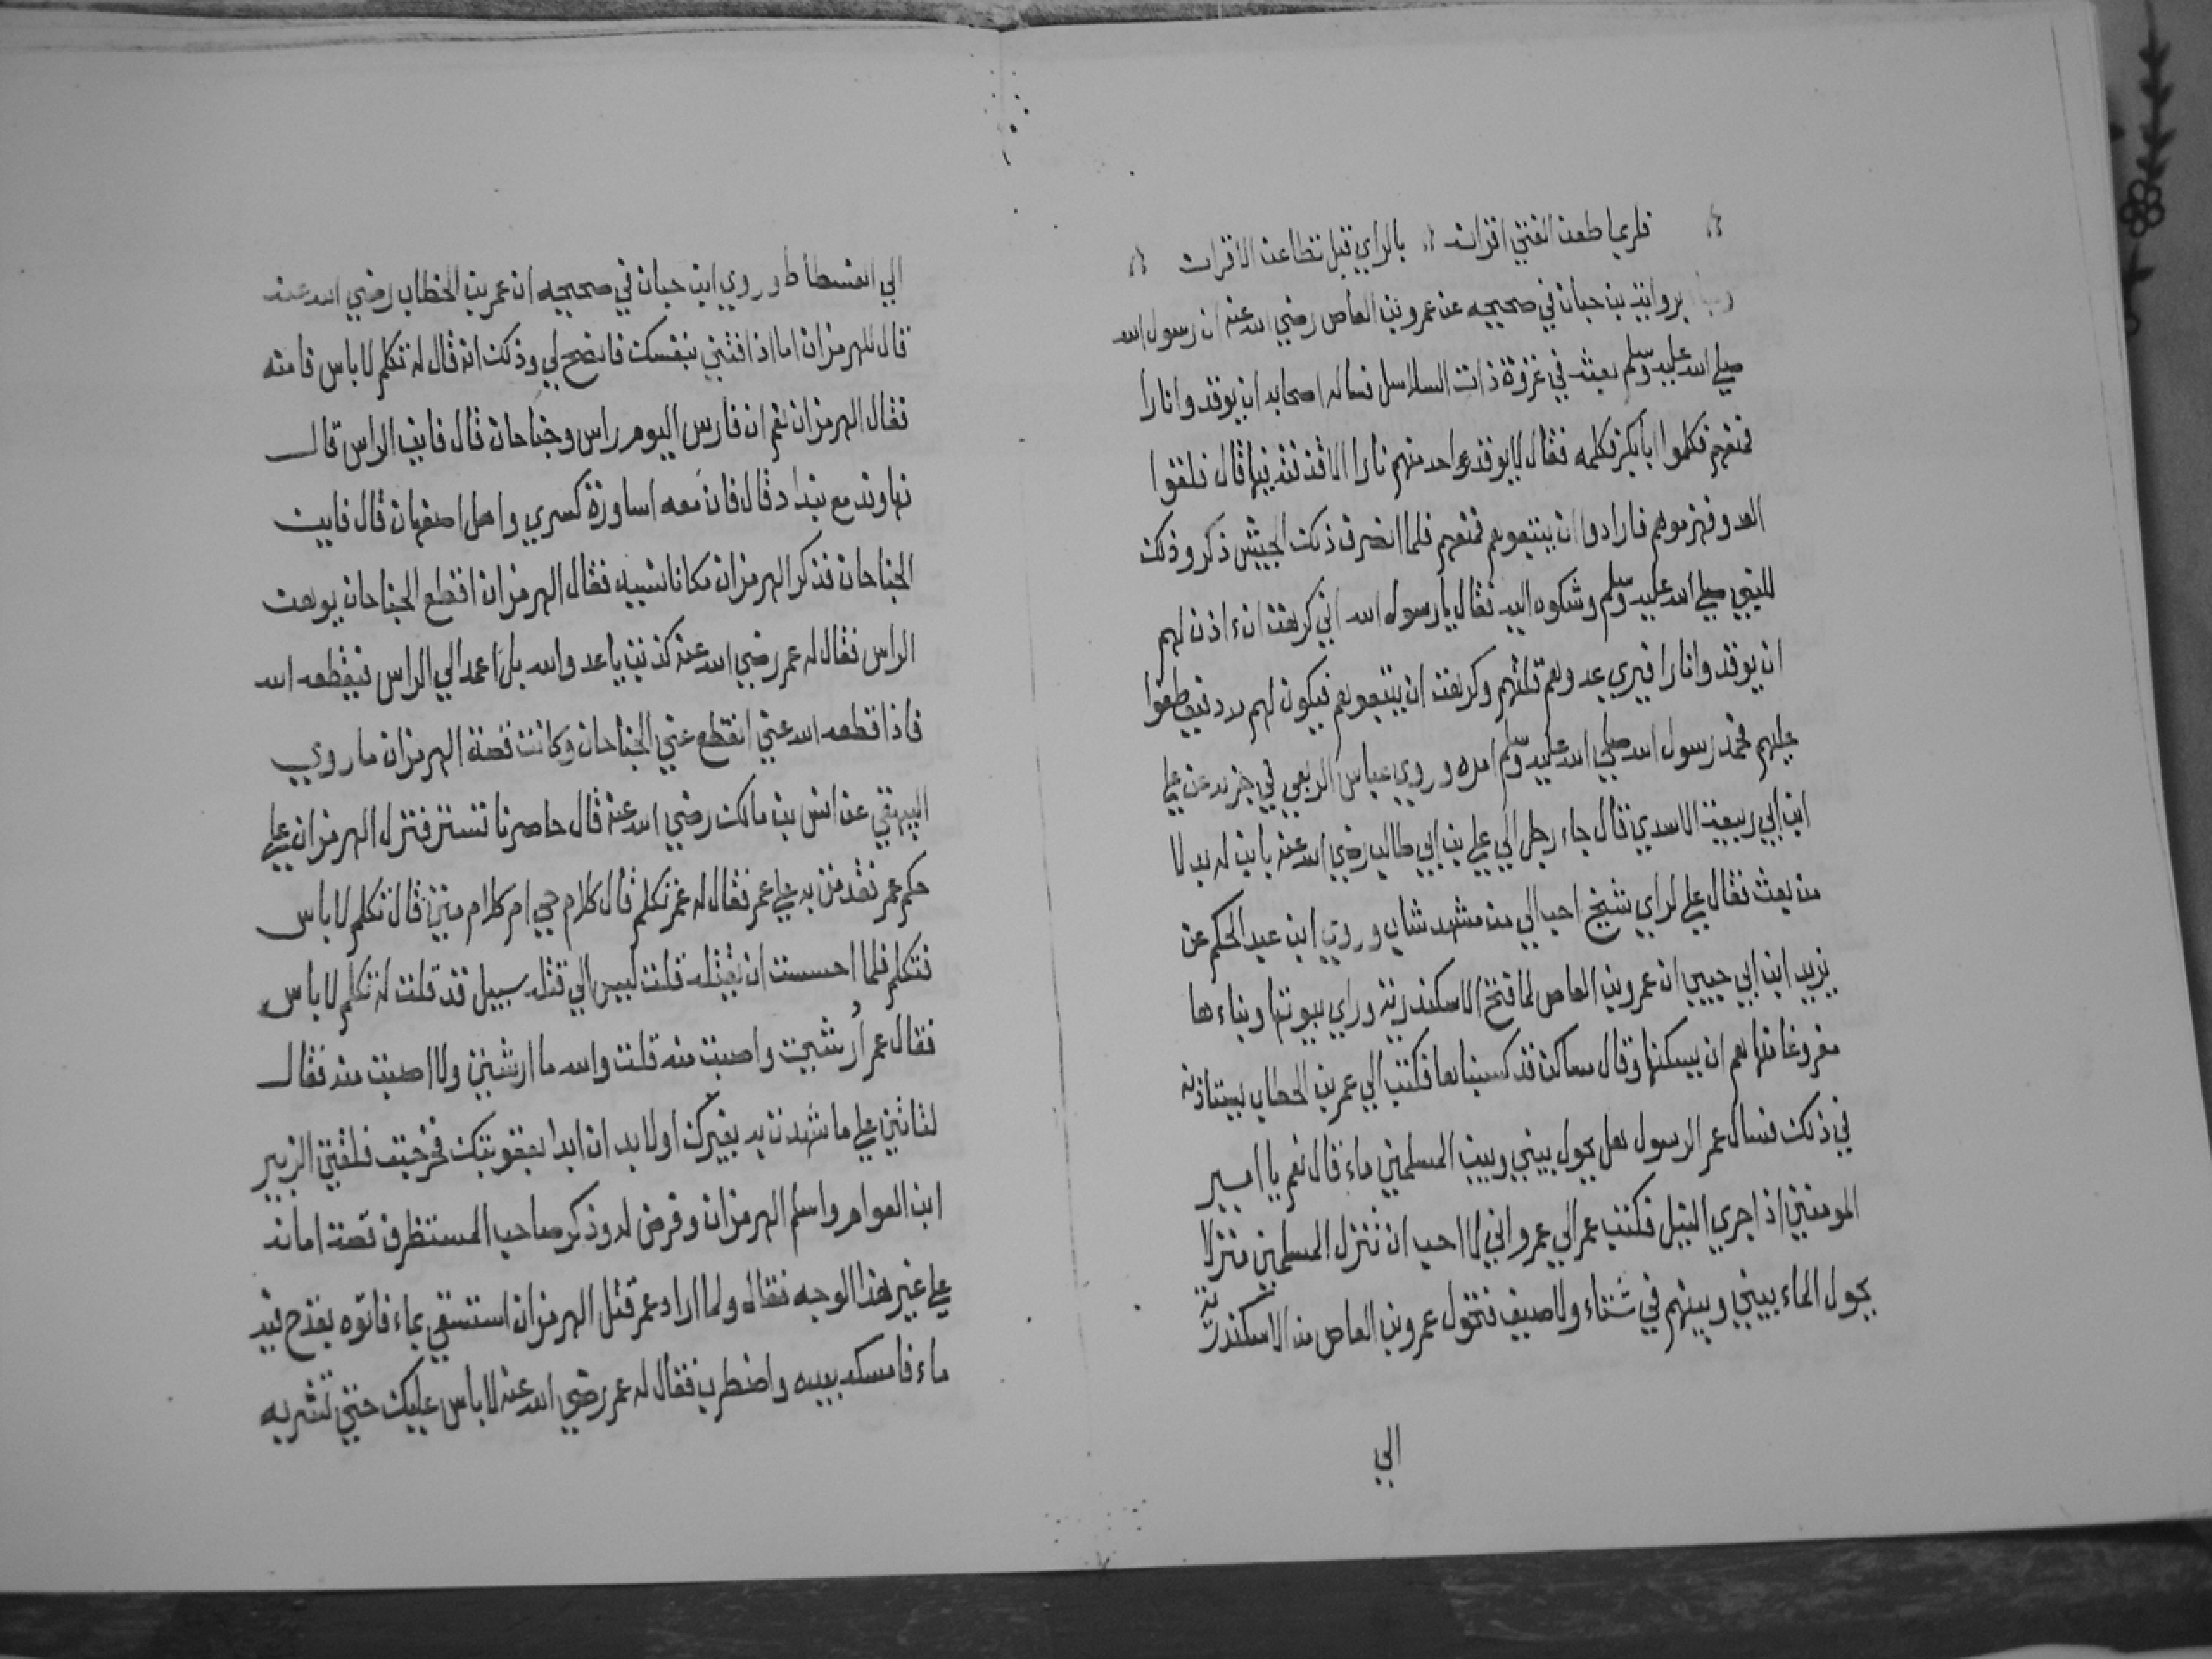 فلربما طعن الفتي اقرانه بالراي قبل تطاعن الاقران
برواية بن حبان في صحيحه عن عمرو بن العاص رضي الله عنه ان رسول الله
صلي الله عليه وسلم بعثه في غزوة ذات السلاسل فساله اصحابه ان يوقدوا نارا
فمنعهم فكلموا ابابكر فكلمه فقال لا يوقد واحد منهم نارا الا قذفته فيها قال فلقوا
العدو فهزموهم فارادوا ان يتبعوهم فمنعهم فلما انصرف ذكك الجيش ذكروا ذلك
للنبي صلي الله عليه وسلم وشكوه اليه فقال يا رسول الله اني كرهت ان ءاذن لهم
ان يوقدوا نارا فيري عدوهم قلتهم وكرهت ان يتبعوهم فيكون لهم مدد فيعطفوا
عليهم فحمد رسول الله صلي الله عليه وسلم امره وروي عباس الربعي في جزءه عن علي
ابن ابي ربيعة الاسدي قال جاء رجل الي علي بن ابي طالب رضي الله عنه بابن له بدلا
من بعث فقال علي لراي شيخ احب الي من مشهد شاب وروي ابن عبد الحكم عن
يزيد ابن ابي حبيب ان عمرو بن العاص لما فتح الاسكندرية وراي بيوتها وبناءها
مفروغا منها هم ان يسكنها وقال مساكن قد كسبناها فكتب الي عمر بن الخطاب يستاذنه
في ذلك فسال عمر الرسول هل يحول بيني وبين المسلمين ماء قال نعم يا امير
المومنين اذا جري النيل فكتب عمر الي عمرو اني لا احب ان تنزل المسلمين منزلا
يحول الماء بيني وبينهم في شتاء ولا صيف فتحول عمرو بن العاص من الاسكندرية
الي
الي الفسطاط وروي ابن حبان في صحيحه ان عمر بن الخطاب رضي الله عنه
قال للهرمزان اما اذا فتني بنفسك فانصح لي وذلك انه قال له تكلم لا باس فامنه
فقال الهرمزان نعم ان فارس اليوم راس وجناحان قال فاين الراس قال
نهاوند مع بنداد قال فان معه اساورة كسري واهل اصفهان قال فاين
الجناحان فذكر الهرمزان مكانا نسيه فقال الهرمزان اقطع الجناحان يوهن
الراس فقال له عمر رضي الله عنه كذبت يا عدو الله بل اعمد الي الراس فيقطعه الله
فاذا قطعه الله عني انقطع عني الجناحان وكانت قصة الهرمزان ما روي
البيهقي عن انس بن مالك رضي الله عنه قال حاصرنا تستر فنزل الهرمزان علي
حكم عمر فقدمت به علي عمر فقال له عمر تكلم قال كلام حي ام كلام ميت قال تكلم لا باس
فتكلم فلما احسست ان يقتله قلت ليس الي قتله سبيل قد قلت له تكلم لا باس
فقال عمر ارتشيت واصبت منه قلت والله ما ارتشيت ولا اصبت منه فقال
لتاتين علي ما شهدت به بغيرك او لابد ان ابدا بعقوبتك فخرجت فلقيت الزبير
ابن العوام واسلم الهرمزان وفرض له وذكر صاحب المستظرف قصة امانه
علي غير هذا الوجه فقال ولما اراد عمر قتل الهرمزان استسقي بماء فاتوه بقدح فيه
ماء فامسكه بيده واضطرب فقال له عمر رضي الله عنه لا باس عليك حتي تشربه